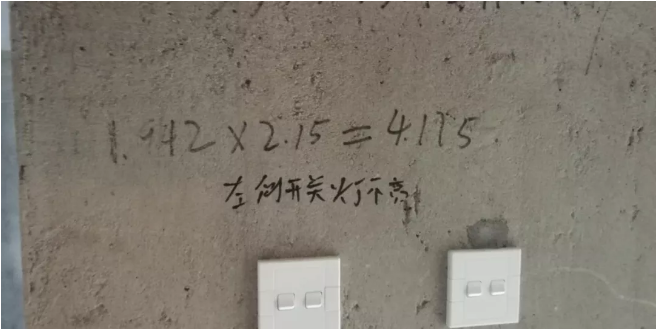 1.942×2.15=4.175
左侧开关灯不亮